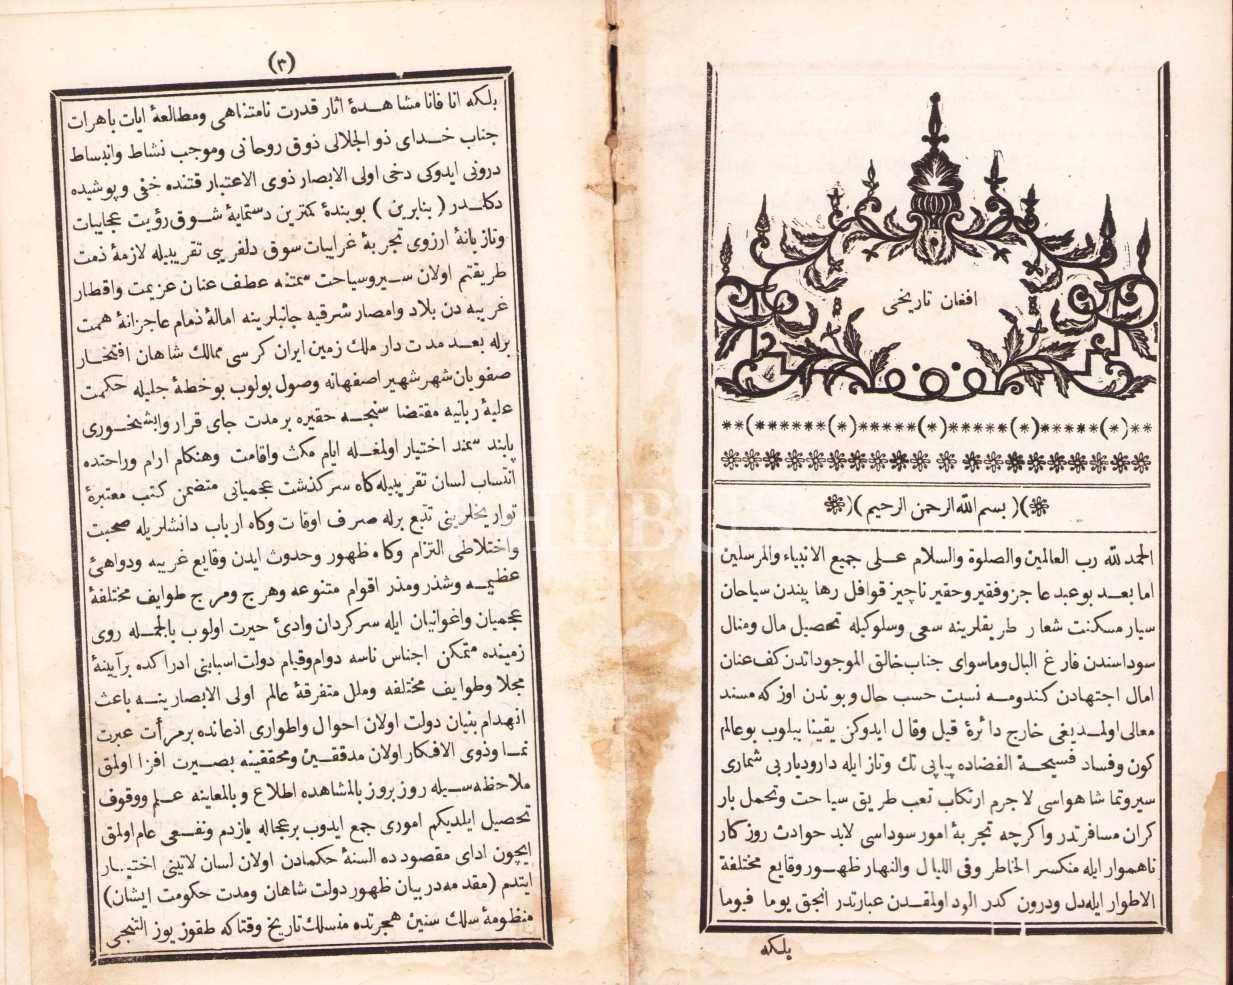 افغان تاريخى
بسم الله الرحمن الرحيم
الحمد لله رب العالمين والصلوة والسلام عــلى جميع الانبياء والمرسلين
اما بعــد بو عبد عاجز و فقير و حقير ناچيز قوافل رها بيندن سياحان
سيار مسكنت شعار طريقلرينه سعى وسلوكيله تحصيل مال ومنال
سوداسندن فارغ البال وماسواى جناب خالق الموجوداتدن كف عنان
امال اجتهادن كندومــه نسبت حسب حال و بوندن اوزكه مسند
معالى اولمــديغى خارج دائرۀ قيل وقال ايدوكن يقينا بيلوب بوعالم
كون وفساد فسيحــة الفضاده پياپى تك وتاز ايله دارودیار بى شمارى
سيروتماشا هواسى لاجرم ارتكاب تعب طريق سياحت وتحمل بار
كران مسافرتدر واكرچه تجربۀ امور سوداسى لابد حوادث روزكار
ناهموار ايله منكسر الخاطر وفى الليال والنهار ظهــور وقايع مختلفة
الاطوار ايله دل ودرون كدر الود اولمقــدن عبارتدر انجق يوما فيوما
بلكه
(٣)
بلكه انا فانا مشاهــدۀ اثار قدرت نامتناهى ومطالعۀ ايات باهرات
جناب خــداى ذو الجلالى ذوق روحانى وموجب نشاط وانبساط
درونى ايدوكى دخى اولى الابصار ذوى الاعتبار قتنده خفى وپوشيده
دكلــدر (بنابرين) بوبندۀ كمترين دستمايۀ شــوق رؤيت عجايبات
وتازيانۀ ارزوى تجربۀ غرايبات سوق دلفريبى تقريبيله لازمۀ ذمت
طريقتم اولان ســيروسياحت سمتنه عطف عنان عزيمت واقطار
غريبه دن بلاد وامصار شرقيه جانبلرينه امالۀ ذمام عاجزانۀ همت
برله بعــد مدت دار ملك زمين ايران كرسى ممالك شاهان افتخــار
صفويان شهر شهير اصفهانه وصول بولوب بو خطۀ جليله حكمت
عليۀ ربانيه مقتضا سنجــه حقيره بر مدت جاى قرار وابشخــورى
پابند سمند اختيار اولمغــله ايام مكث واقامت وهنكام ارام وراحتده
انتساب لسان تقريبيله كاه سركذشت عجميانى متضمن كتب معتبرۀ
تواريخلرينى تتبع برله صرف اوقات وكاه ارباب دانشلريله صحبت
واختلاطى التزام وكاه ظهور وحدوث ايدن وقايع غريبه ودواهئ
عظيمــه وشذر ومذر اقوام متنوعه وهرج ومرج طوايف مختلفۀ
عجميان واغوانيان ايله سركردان وادئ حيرت اولوب بالجمــله روى
زمينده متمكن اجناس ناسه دوام وقيام دولت اسبابنى ادراكده برآيينۀ
مجلا وطوايف مختلفه وملل متفرقۀ عالم اولى الابصارينــه باعث
انهدام بنيان دولت اولان احوال واطوارى اذعانده بر مرأت عبرت
نمــا وذوى الافكار اولان مدققــين ومحققينه بصــيرت افزا اولمق
ملاحظه ســيله روز بروز بالمشاهده اطلاع و بالمعاينه عــلم ووقوف
تحصيل ايلديكم امورى جمع ايدوب بر عجاله يازدم ونفــعى عام اولمق
ايچون اداى مقصود ده السنۀ حكمادن اولان لسان لاتينى اختيــار
ايتدم (مقدمه دربيان ظهور دولت شاهان ومدت حكومت ايشان)
منظومۀ سلك سنين هجرتده منسلك تاريخ وقتاكه طقوز يوز التمجى